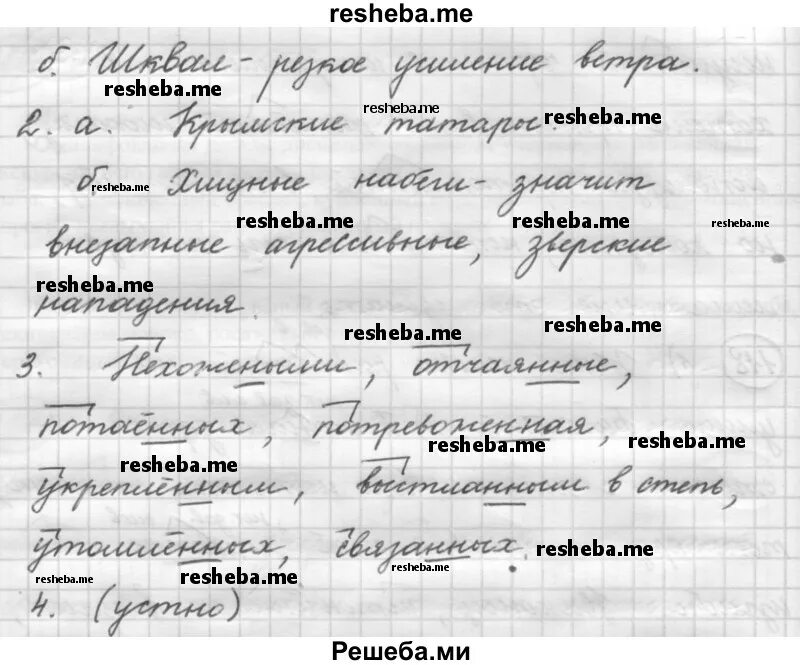 resheba.me
б. Шквал - резкое усиление ветра.
resheba.me
2. а. Крымские татары.
resheba.me resheba.me
б. Хищные набеги - значит
resheba.me
resheba.me resheba.me resheba.me
внезапные агрессивные, зверские
resheba.me
нападения.
resheba.me resheba.me
3. Нехожеными, отчаянные,
потаённых, потревоженная,
resheba.me resheba.me resheba.me
укреплённым, выстланным в степь,
утомлённых, связанных.
resheba.me resheba.me resheba.me resheba.me
4. (устно)
Решеба.ми